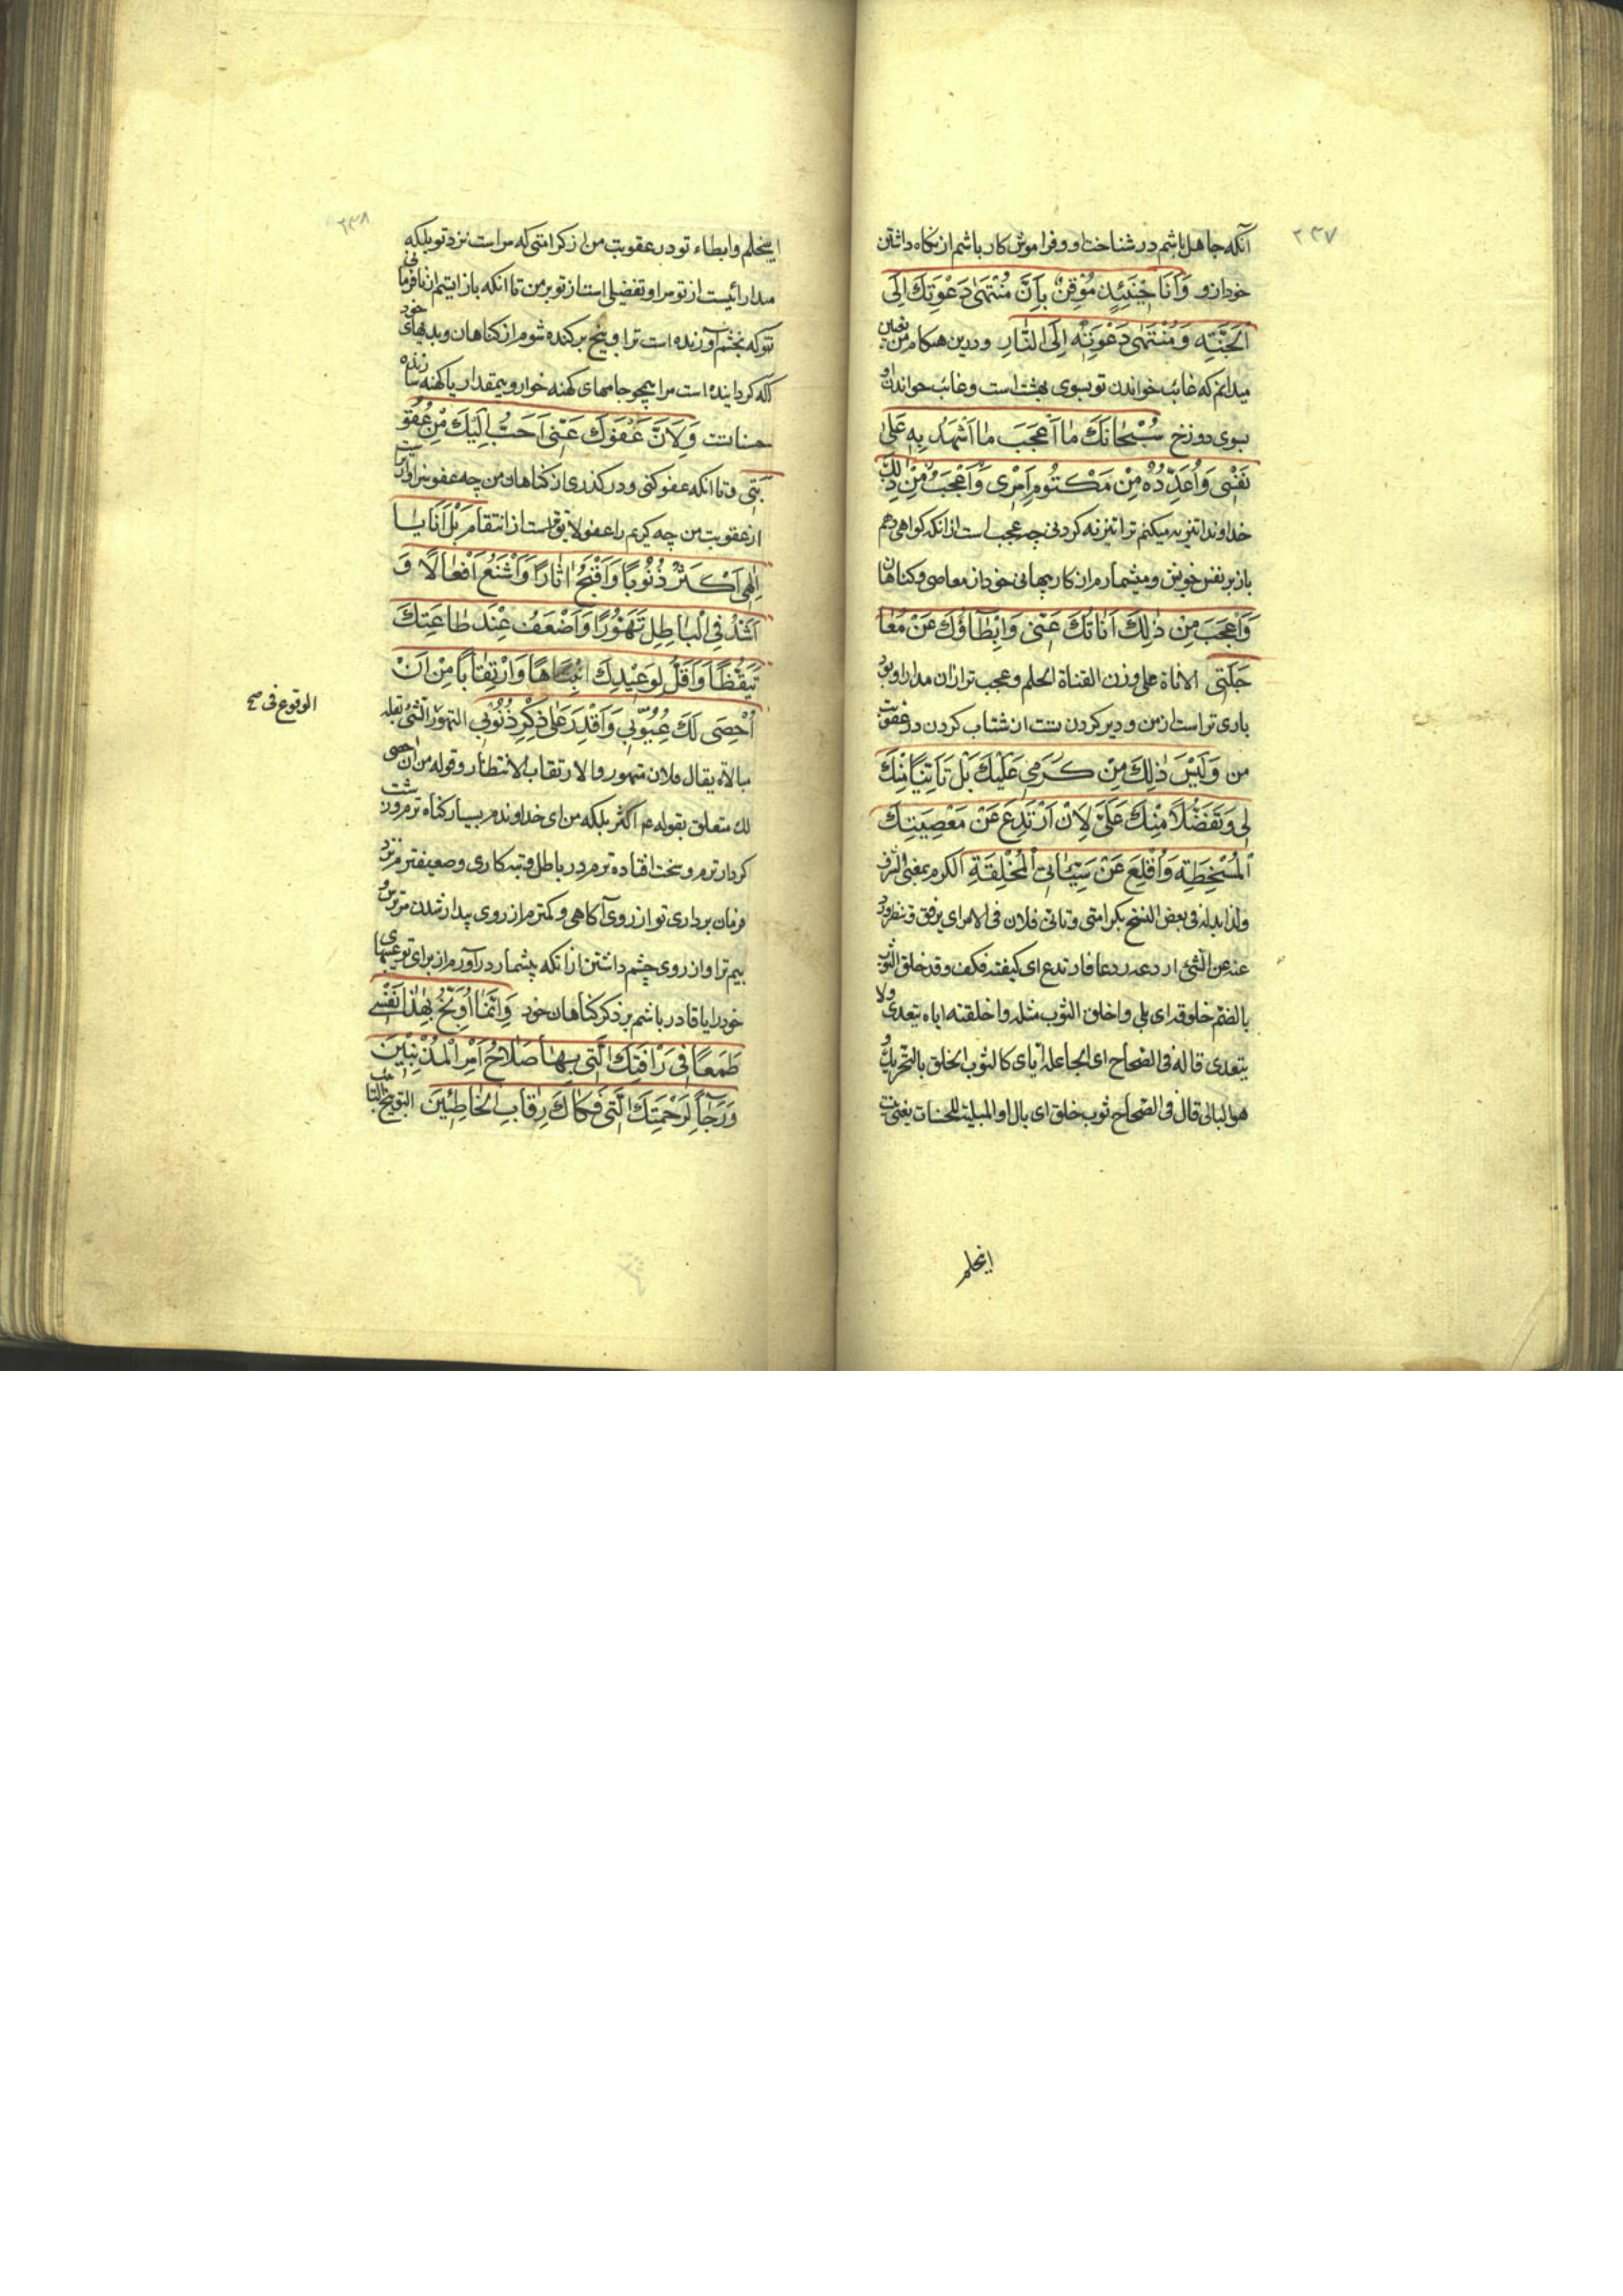 ۲۳۷
آنکه جاهل باشم در شناخت او و فراموش کار باشم از نگاه داشتن
خود ازو وَ أَنَا حِينَئِذٍ مُوقِنٌ بِأَنَّ مُنْتَهَى دَعْوَتِكَ إِلَى
الْجَنَّةِ وَ مُنْتَهَى دَعْوَتِهِ إِلَى النَّارِ و درین هنگام من
میدانم که غائب خواندن تو بسوی بهشت است و غائب خواندن او
بسوی دوزخ سُبْحَانَكَ مَا أَعْجَبَ مَا أَشْهَدُ بِهِ عَلَى
نَفْسِي وَ أُعَدِّدُهُ مِنْ مَكْتُومِ أَمْرِي وَ أَعْجَبُ مِنْ ذَلِكَ
خداوندا تنزیه میکنم ترا تنزیه کردنی چه عجب است ازانکه کواهی دهم
باز بر نفس خویش و میشمارم از کار پنهانی خود از معاصی و کناهان
وَ أَعْجَبَ مِنْ ذَلِكَ أَنَاتُكَ عَنِّي وَ إِبْطَاؤُكَ عَنْ مُعَا
جَلَتِي الاناة علی وزن القناة الحلم و عجب تر ازان مدارا و
باری تراست از من و دیر کردن تست از شتاب کردن در عقوبت
من وَ لَيْسَ ذَلِكَ مِنْ كَرَمِي عَلَيْكَ بَلْ تَأَنِّيًا مِنْكَ
لِي وَ تَفَضُّلًا مِنْكَ عَلَيَّ لِأَنْ أَرْتَدِعَ عَنْ مَعْصِيَتِكَ
الْمُسْخِطَةِ وَ أُقْلِعَ عَنْ سَيِّئَاتِيَ الْمُخْلِقَةِ الکرم بمعنی الشرف
ولذا بدله فی بعض النسخ بکرامتی و تانی فلان فی الامر ای ترفق و تنظر
عنه عن الشئ اردعه ردعا فارتدع ای کففته فکف و قد خلق الثوب
بالضم خلوقة ای بلی و اخلق الثوب مثله و اخلقته انا یتعدی ولا
یتعدی قاله فی الصحاح ای الجاعلة ایای کالثوب الخلق بالتحریک و
هو البالی قال فی الصحاح ثوب خلق ای بال او المبلیة للحسنات یعنی نیست
اینحلم
۲۳۸
اینحلم و ابطاء تو در عقوبت من از کرامتی که مراست نزد تو بلکه
مدارائیست از تو مرا و تفضیلی است از تو بر من تا انکه باز ایستم از نافرمانی
تو که بخشم آورنده است ترا و بیخ برکنده شوم از کناهان و بدیهای خود
که کرداینده است مرا همچو جامهای کهنه خوار و بیمقدار یا کهنه سازنده
حسناتست وَ لِأَنَّ عَفْوَكَ عَنِّي أَحَبُّ إِلَيْكَ مِنْ عُقُو
بَتِي و تا انکه عفو کنی و در کذری از کناهان من چه عفو سزاوارتر است
از عقوبت من چه کریم را عفو لایق تر است از انتقام بَلْ أَنَا يَا
إِلَهِي أَكْثَرُ ذُنُوبًا وَ أَقْبَحُ آثَارًا وَ أَشْنَعُ أَفْعَالًا وَ
أَشَدُّ فِي الْبَاطِلِ تَهَوُّرًا وَ أَضْعَفُ عِنْدَ طَاعَتِكَ
تَيَقُّظًا وَ أَقَلُّ لِوَعِيدِكَ انْتِبَاهًا وَ ارْتِقَابًا مِنْ أَنْ
أُحْصِيَ لَكَ عُيُوبِي وَ أَقْدِرَ عَلَى ذِكْرِ ذُنُوبِي التهور الشئ بقلة
الوقوع فی صح
مبالاة یقال فلان متهور و الارتقاب الانتظار و قوله من ان احصی
لك متعلق بقوله عم اکثر بلکه من ای خداوندم بسیار کناه ترم و زشت
کردارترم و سخت افتاده ترم در باطل و تبه کاری و ضعیفترم نزد
فرمان برداری تو از روی آکاهی و کمترم از روی بیدار شدن مر
بیم ترا و از روی چشم داشتن ازانکه بشمار درآورم از برای تو عیبهای
خود را یا قادر باشم بر ذکر کناهان خود وَ إِنَّمَا أُوَبِّخُ بِهَذَا نَفْسِي
طَمَعًا فِي رَأْفَتِكَ الَّتِي بِهَا صَلَاحُ أَمْرِ الْمُذْنِبِينَ
وَ رَجَاءً لِرَحْمَتِكَ الَّتِي فَكَاكُ رِقَابِ الْخَاطِئِينَ التوبیخ